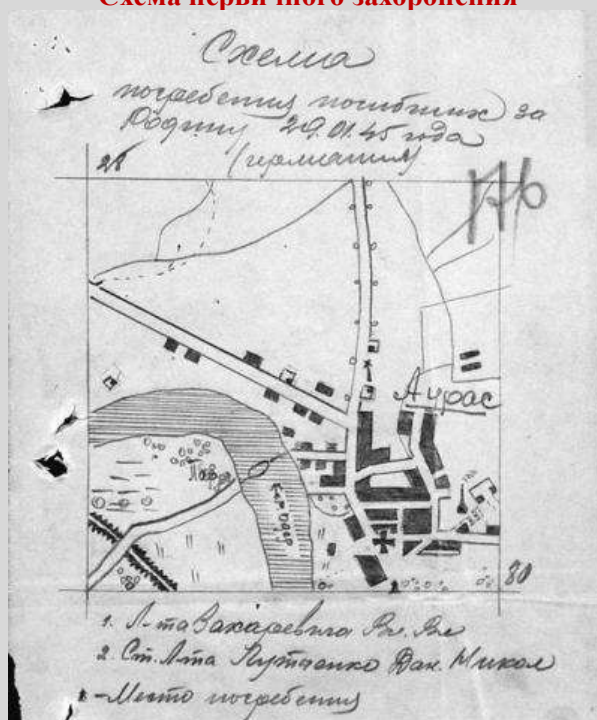 Схема первичного захоронения
Схема
погребения погибших за
Родину 29.01.45 года
(германия)
28
176
Аурас
Кан. Одер
80
1. Л-та Захаревича Вл. Вл
2. Ст. Л-та Путченко Дан. Микол
- Место погребения